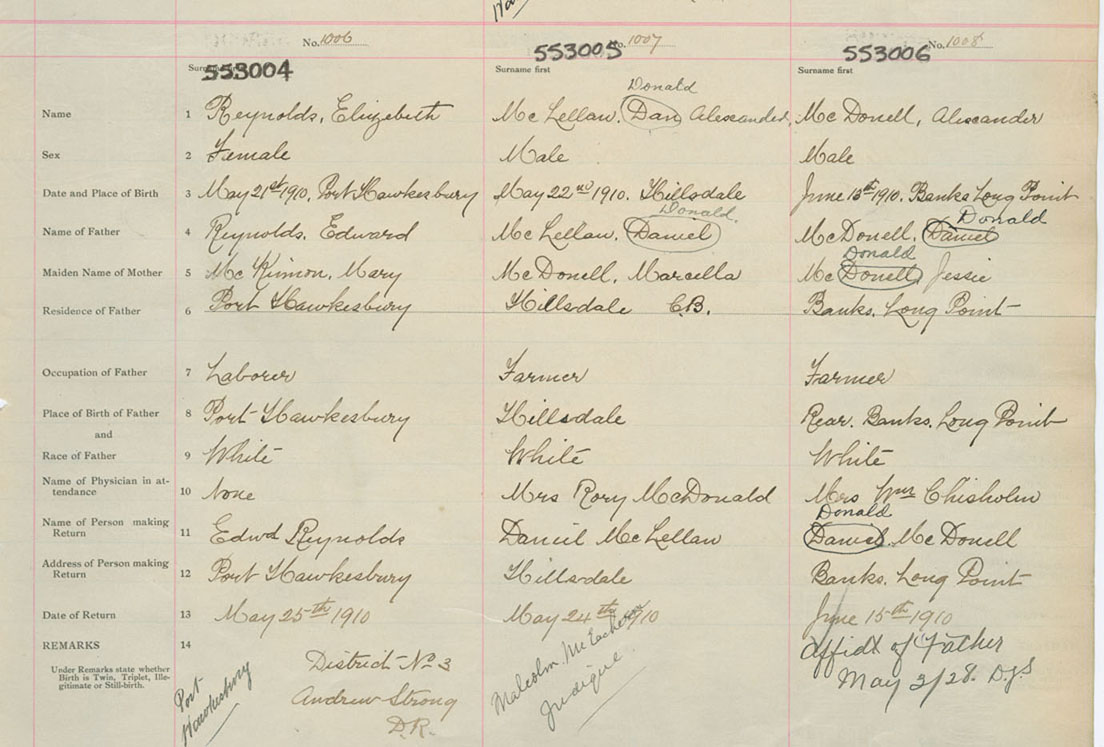 No. 1006
No. 1007
No. 1008
553004
553005
553006
Surname first
Surname first
Donald
Name 1 Reynolds, Elizabeth
Mc Lellan, Dan Alexander,
Mc Donell, Alexander
Sex 2 Female
Male
Male
Date and Place of Birth 3 May 21st 1910, Port Hawkesbury
May 22nd 1910. Hillsdale
June 13th 1910. Banks Long Point
Donald.
Donald
Name of Father 4 Reynolds, Edward
Mc Lellan, Daniel
Mc Donell, Daniel
Donald
Maiden Name of Mother 5 Mc Kinnon, Mary
Mc Donell, Marcella
Mc Donell, Jessie
Residence of Father 6 Port Hawkesbury
Hillsdale C.B.
Banks. Long Point
Occupation of Father 7 Laborer
Farmer
Farmer
Place of Birth of Father 8 Port Hawkesbury
Hillsdale
Rear. Banks. Long Point
and
Race of Father 9 White
White
White
Name of Physician in at-
tendance 10 None
Mrs Rory McDonald
Mrs Wm Chisholm
Donald
Name of Person making
Return 11 Edwd Reynolds
Daniel Mc Lellan
Daniel. Mc Donell
Address of Person making
Return 12 Port Hawkesbury
Hillsdale
Banks. Long Point
Date of Return 13 May 25th 1910
May 24th 1910
June 15th 1910
REMARKS 14
Under Remarks state whether
Birth is Twin, Triplet, Ille-
gitimate or Still-birth.
Port
Hawkesbury
District No 3
Andrew Strong
D.R.
Malcolm McEachern
Judique
Affidt of Father
May 3/28.